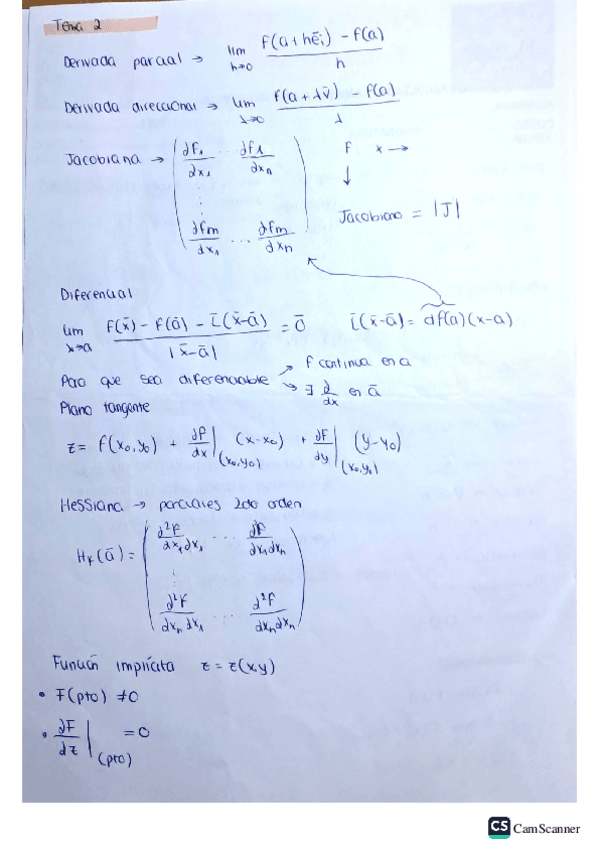 Tema 2
Derivada parcial → lim h→0 f(a+hēi) - f(a) / h
Derivada direccional → lim λ→0 f(a+λv̄) - f(a) / λ
Jacobiana → ( ∂f₁/∂x₁ ... ∂f₁/∂xn
⋮
∂fm/∂x₁ ... ∂fm/∂xn )
F x →
↓
Jacobiano = |J|
Diferencial
lim x→a f(x̄) - f(ā) - L̄(x̄-ā) / |x̄-ā| = 0̄ L̄(x̄-ā) = df(a)(x-a)
Para que sea diferenciable → f continua en a
→ ∃ ∂/dx en ā
Plano tangente
z = f(x₀,y₀) + ∂f/dx |(x₀,y₀) (x-x₀) + ∂F/dy |(x₀,y₀) (y-y₀)
Hessiana → parciales 2do orden
Hf(ā) = ( ∂²f/dx₁dx₁ ... ∂f/dx₁dxn
⋮
∂²f/dxndx₁ ... ∂²f/dxndxn )
Función implícita z = z(x,y)
• F(pto) ≠0
• ∂F/dz |(pto) = 0
CS CamScanner